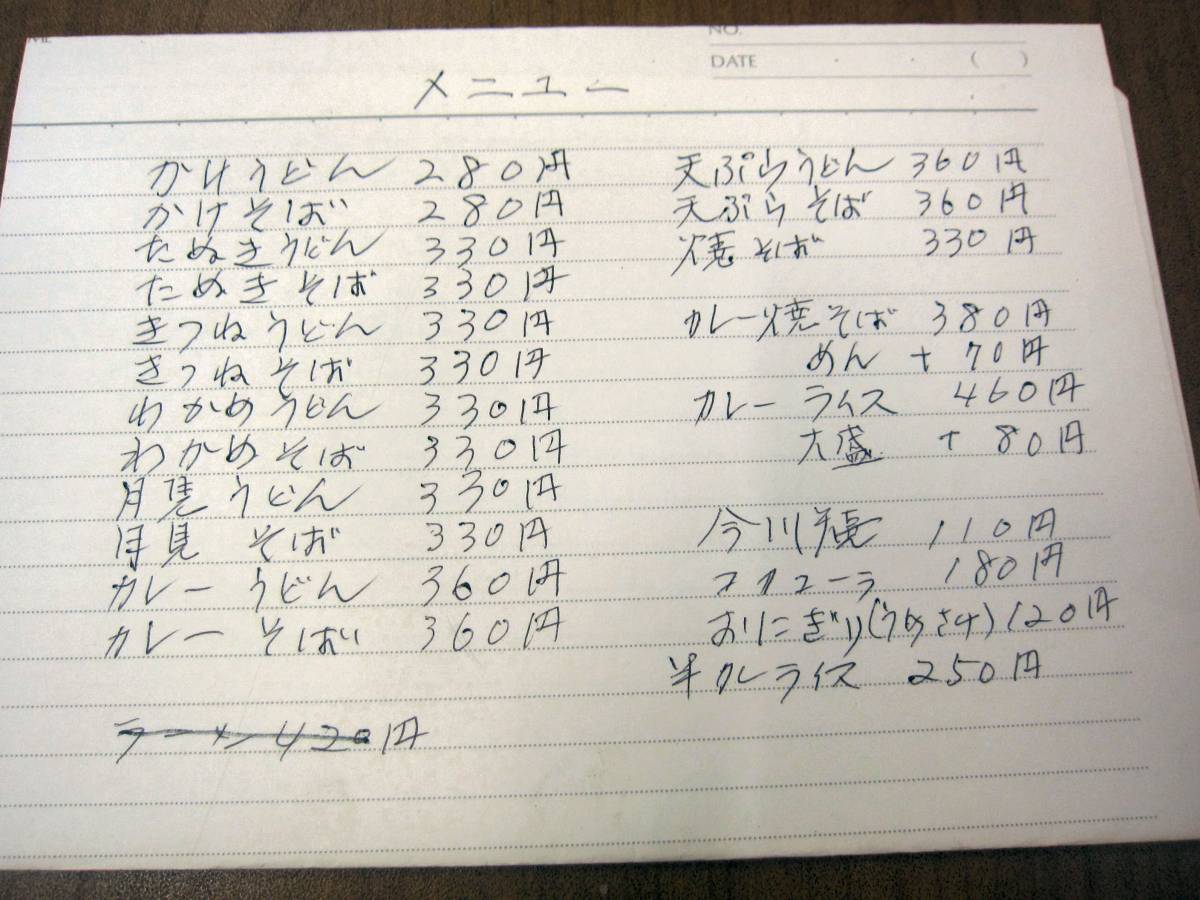 NO.
DATE ・ ・ ( )
メニュー
かけうどん 280円
かけそば 280円
たぬきうどん 330円
たぬきそば 330円
きつねうどん 330円
きつねそば 330円
わかめうどん 330円
わかめそば 330円
月見うどん 330円
月見そば 330円
カレーうどん 360円
カレーそば 360円
ラーメン 420円
天ぷらうどん 360円
天ぷらそば 360円
焼そば 330円
カレー焼そば 380円
めん + 70円
カレーライス 460円
大盛 + 80円
今川焼 110円
コカコーラ 180円
おにぎり(うめさけ) 120円
半カレライス 250円